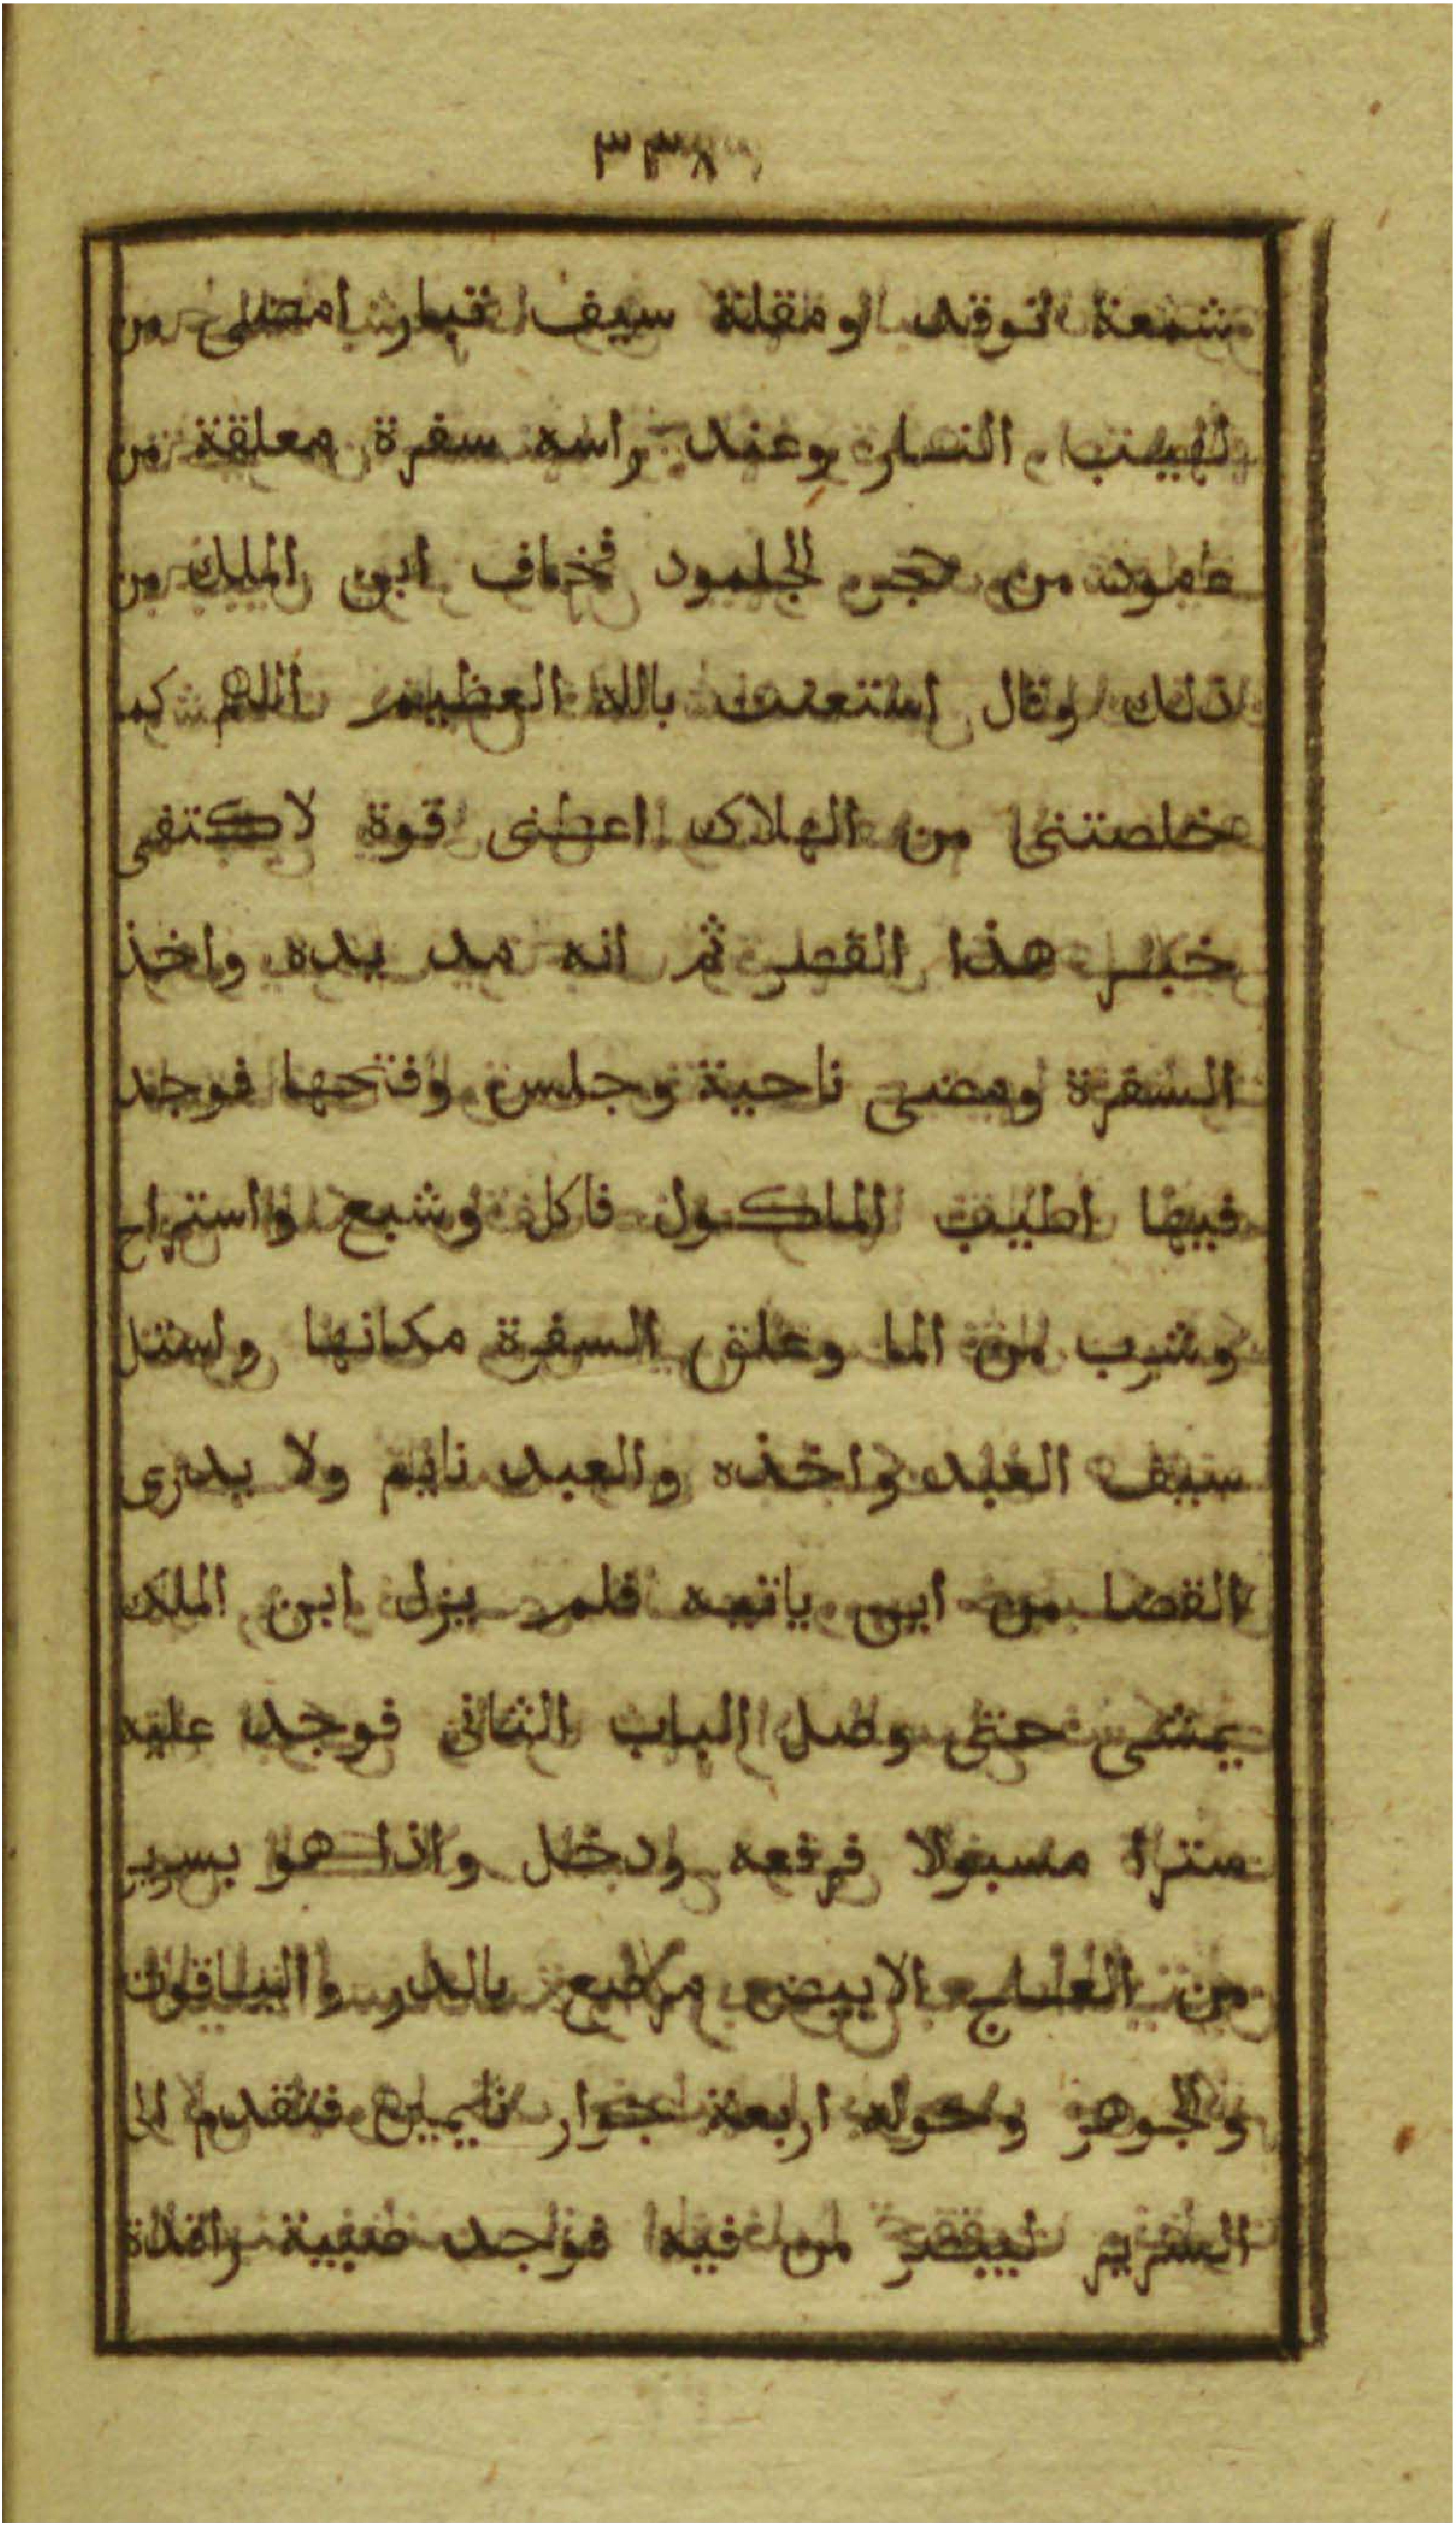 شمعة توقد ومقلة سيف امضى من
لهيب النار وعند راسه سفرة معلقة من
عامود من حجر الجلمود فخاف ابن الملك من
ذلك وقال استعنت بالله العظيم اللهم كما
خلصتنى من الهلاك اعطنى قوة لاكتفى
خبر هذا القصر ثم انه مد يده واخذ
السفرة ومضى ناحية وجلس وفتحها فوجد
فيها اطيب الماكول فاكل وشبع واستراح
وشرب من الما وعلق السفرة مكانها واستل
سيف العبد واخذه والعبد نايم ولا يدرى
القضا من اين ياتيه فلم يزل ابن الملك
يمشى حتى وصل الباب الثانى فوجد عليه
سترا مسبولا فرفعه ودخل واذا هو بسرير
من العاج الابيض مرصع بالدر والياقوت
والجوهر وحوله اربعة جوار نايمين فتقدم الى
السرير ليبصر من فيه فوجد صبية راقدة